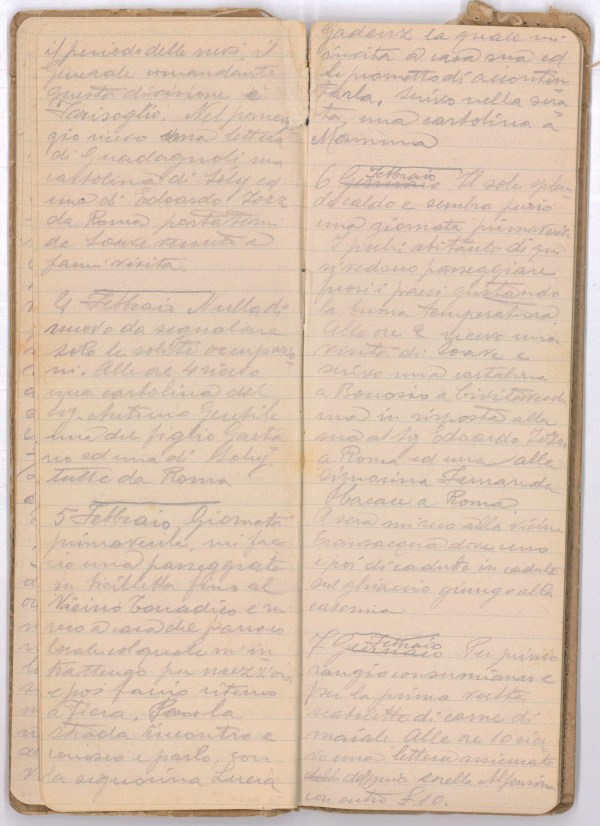 il periodo delle nevi il
Generale comandante
questa divisione è
Farisoglio. Nel pomerig
gio ricevo una lettera
di Guadagnoli una
cartolina di Soly ed
una di Edoardo Zozz
da Roma portatemi
da Soave venuto a
farmi visita.
4 Febbraio Nulla di
nuovo da segnalare
solo le solite occupazio
ni. Alle ore 4 ricevo
una cartolina del
Sig. Antonio
una del figlio Gaeta
no ed una di Soly
tutte da Roma
5 Febbraio Giornata
primaverile, mi fac
cio una passeggiata
in bicicletta fino al
vicino Tonadico e mi
reco a casa del parroco
locale col quale m'in
trattengo per mezz'ora
e poi faccio ritorno
a Fiera. Per la
strada incontro e
conosco e parlo, con
la signorina Lucia
Gadenz la quale mi
invita a casa sua ed
le prometto di acconten
tarla. Scrivo nella sera
ta, una cartolina a
Mamma
6 Gennaio Febbraio Il sole splen
de caldo e sembra perciò
una giornata primaverile.
I pochi abitanti di qui
si vedono passeggiare
fuori i paesi gustando
la buona temperatura.
Alle ore 2 ricevo una
visita di Soave e
scrivo una cartolina
a Bonosio a Civitavecchia
una in risposta alla
sua al Sig Edoardo Zozzi
a Roma ed una alla
Signorina Fernanda
a Roma
A sera mi reco alla vicina
Transacqua dove uno
e poi di cadute in cadute
sul ghiaccio giungo alla
caserma
7 Gennaio Febbraio Per primo
rancio consumiamo e
per la prima volta
scatolette di carne di
maiale. Alle ore 10 rice
vo una lettera assicurata
della mia sorella Alfonsina
con entro £ 10.